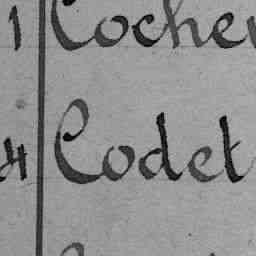 1 Coche
4 Codet